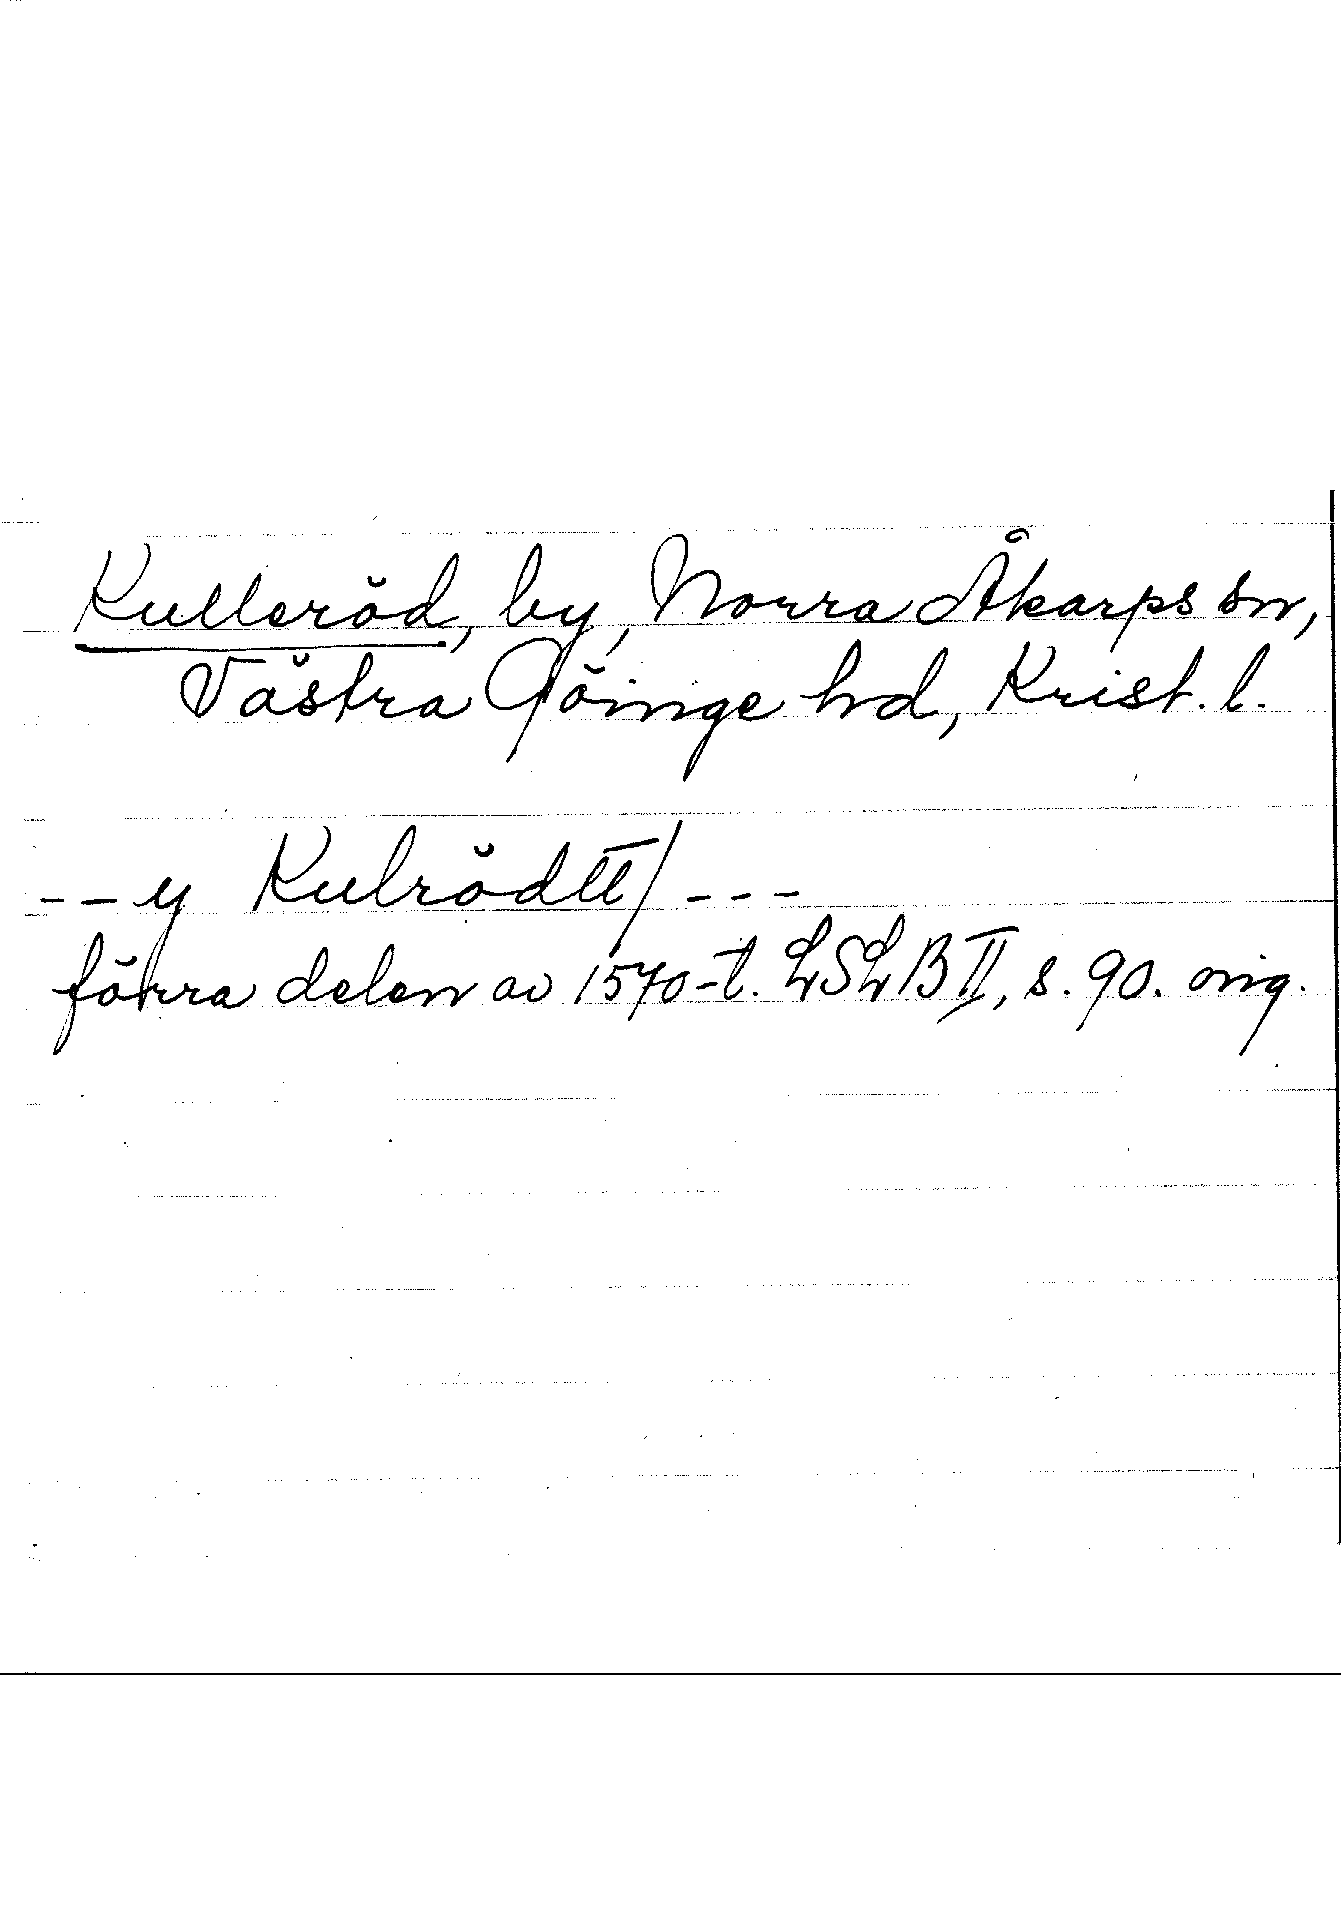 Kulleröd, by, Norra Åkarps sn,
Västra Göinge hd, Krist. l.
--y Kulrödtt/---
förra delen av 1570-t. LSLB II, s. 90. orig.